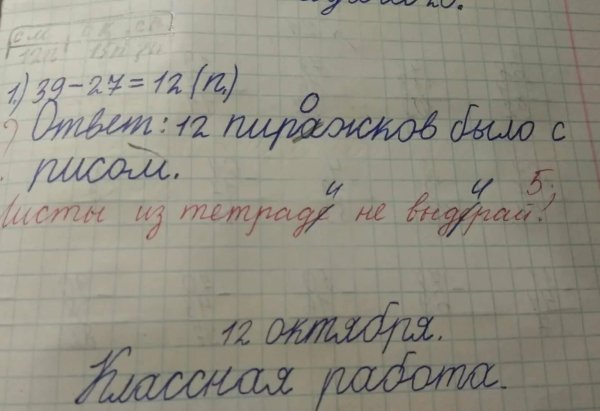 1.) 39-27=12 (п.)
Ответ: 12 пирожков было с
рисом.
Листы из тетради не выдирай!
5.
12 октября.
Классная работа.